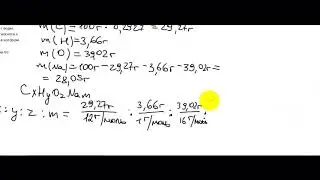 m(C) = 100г · 0,2927 = 29,27г
m(H) = 3,66г
m(O) = 39,02г
m(Na) = 100г - 29,27г - 3,66г - 39,02г =
= 28,05г
CxHyOzNam
: y : z : m = 29,27г/12г/моль : 3,66г/1г/моль : 39,02г/16г/моль :